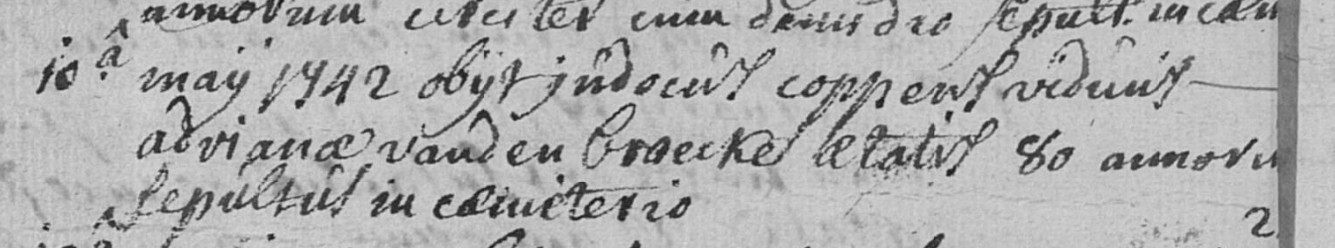 annorum circiter cum dimidio sepult. in cæm
10â may 1742 obijt judocus coppens viduus
adrianæ vanden broecke ætatis 80 annoru
sepultus in cæmeterio
2